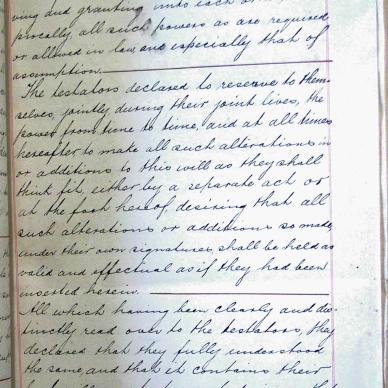 ving and granting unto each other reci-
procally, all such powers as are required
or allowed in law and especially that of
assumption.
The testators declared to reserve to them-
selves, jointly during their joint lives, the
power from time to time, and at all times
hereafter to make all such alterations in
or additions to this will as they shall
think fit, either by a separate act or
at the foot hereof, desiring that all
such alterations or additions so made
under their own signatures, shall be held as
valid and effectual as if they had been
inserted herein.
All which having been clearly and dis-
tinctly read over to the testators, they
declared that they fully understood
the same, and that it contains their